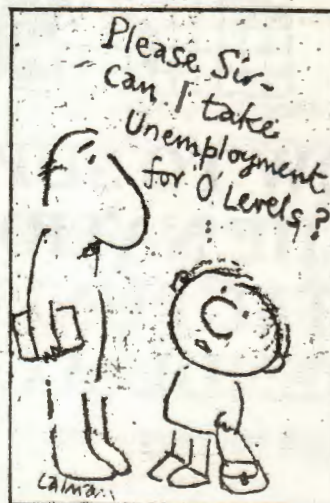 Please Sir-
can I take
Unemployment
for 'O' Levels?
Calman